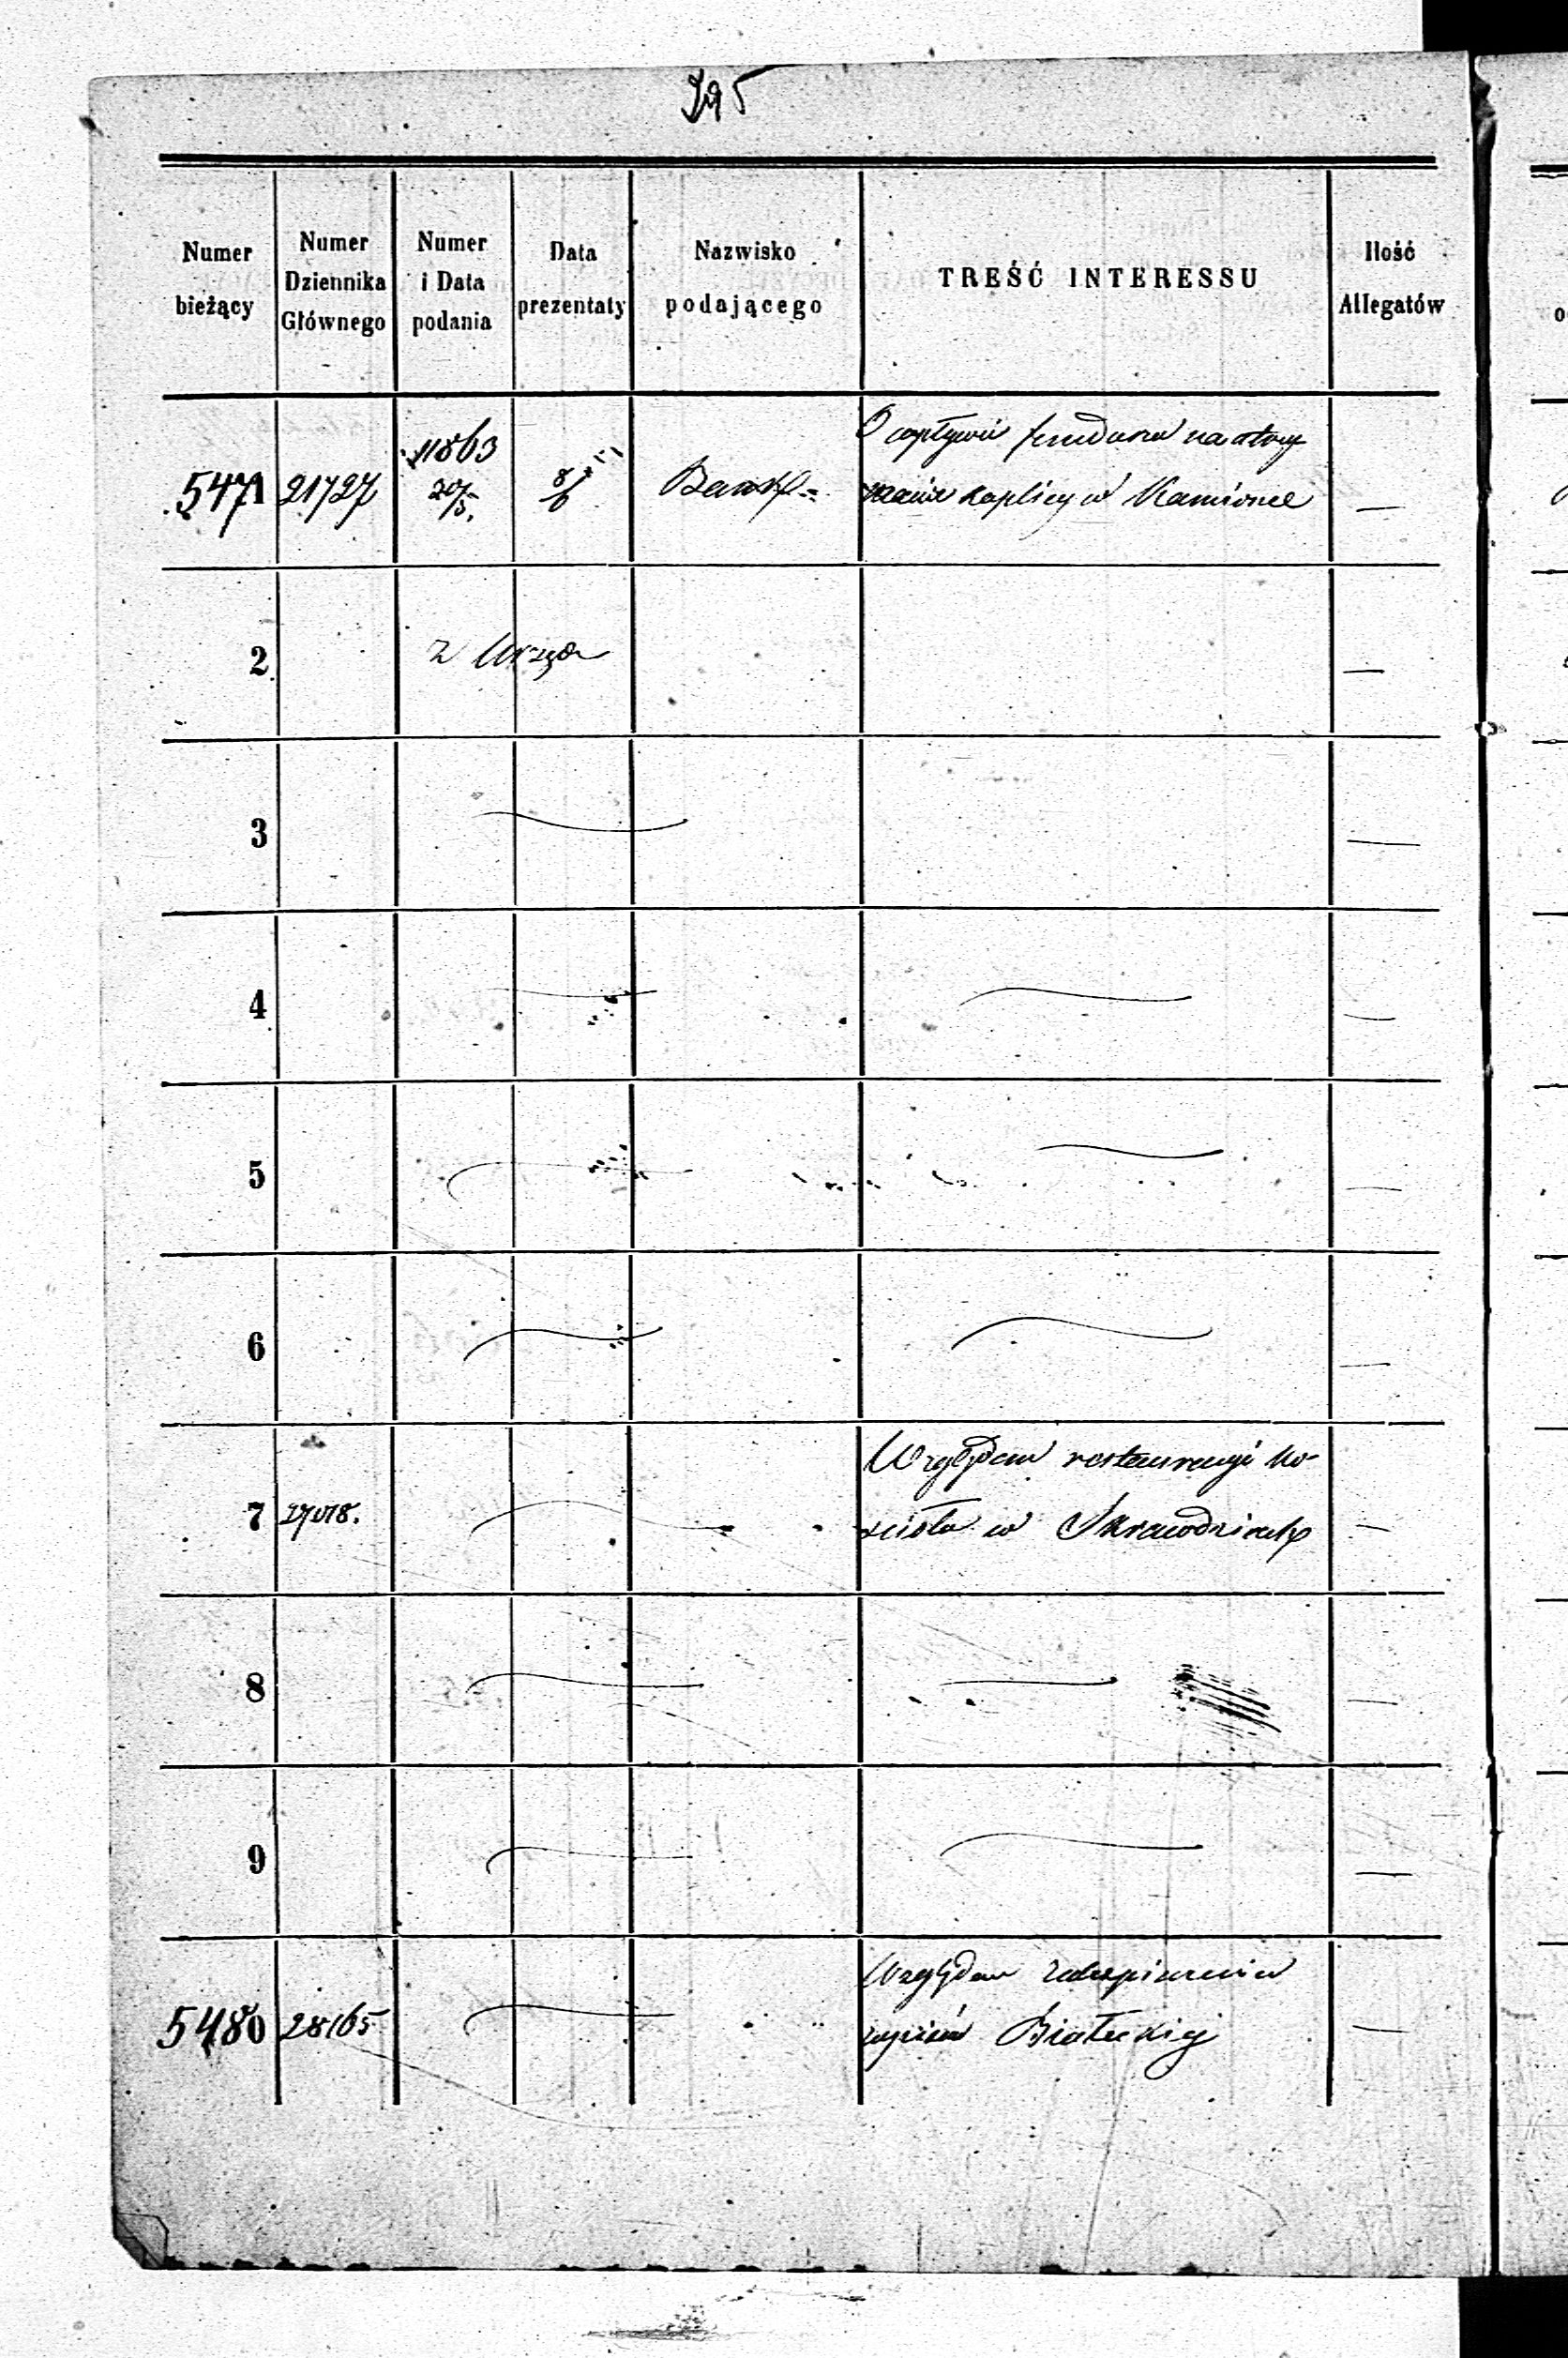 295
Numer bieżący
Numer Dziennika Głównego
Numer i Data podania
Data prezentaty
Nazwisko podającego
TREŚĆ INTERESSU
Ilość Allegatów
5471 21727 11863 20/5. 8/6 Bank = O wpływie funduszu na utrzy
mania kaplicy w Kamionce —
2 z Urzędu —
3 —
4 —
5 —
6 —
7 27018. Względem restauracyi ko-
ścioła w Skrawdzinach —
8 —
9 —
5480 28165 Względem zabezpieczenia
zapisów Białeckiej —